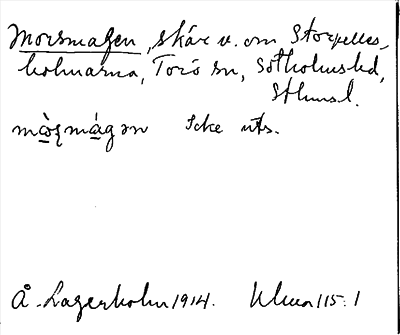 Morsmagen, skär v. om Storpelles-
holmarna, Torö sn, Sotholms hd,
Sthms l.
mòʂmágən Icke uts.
Å. Lagerholm 1914.